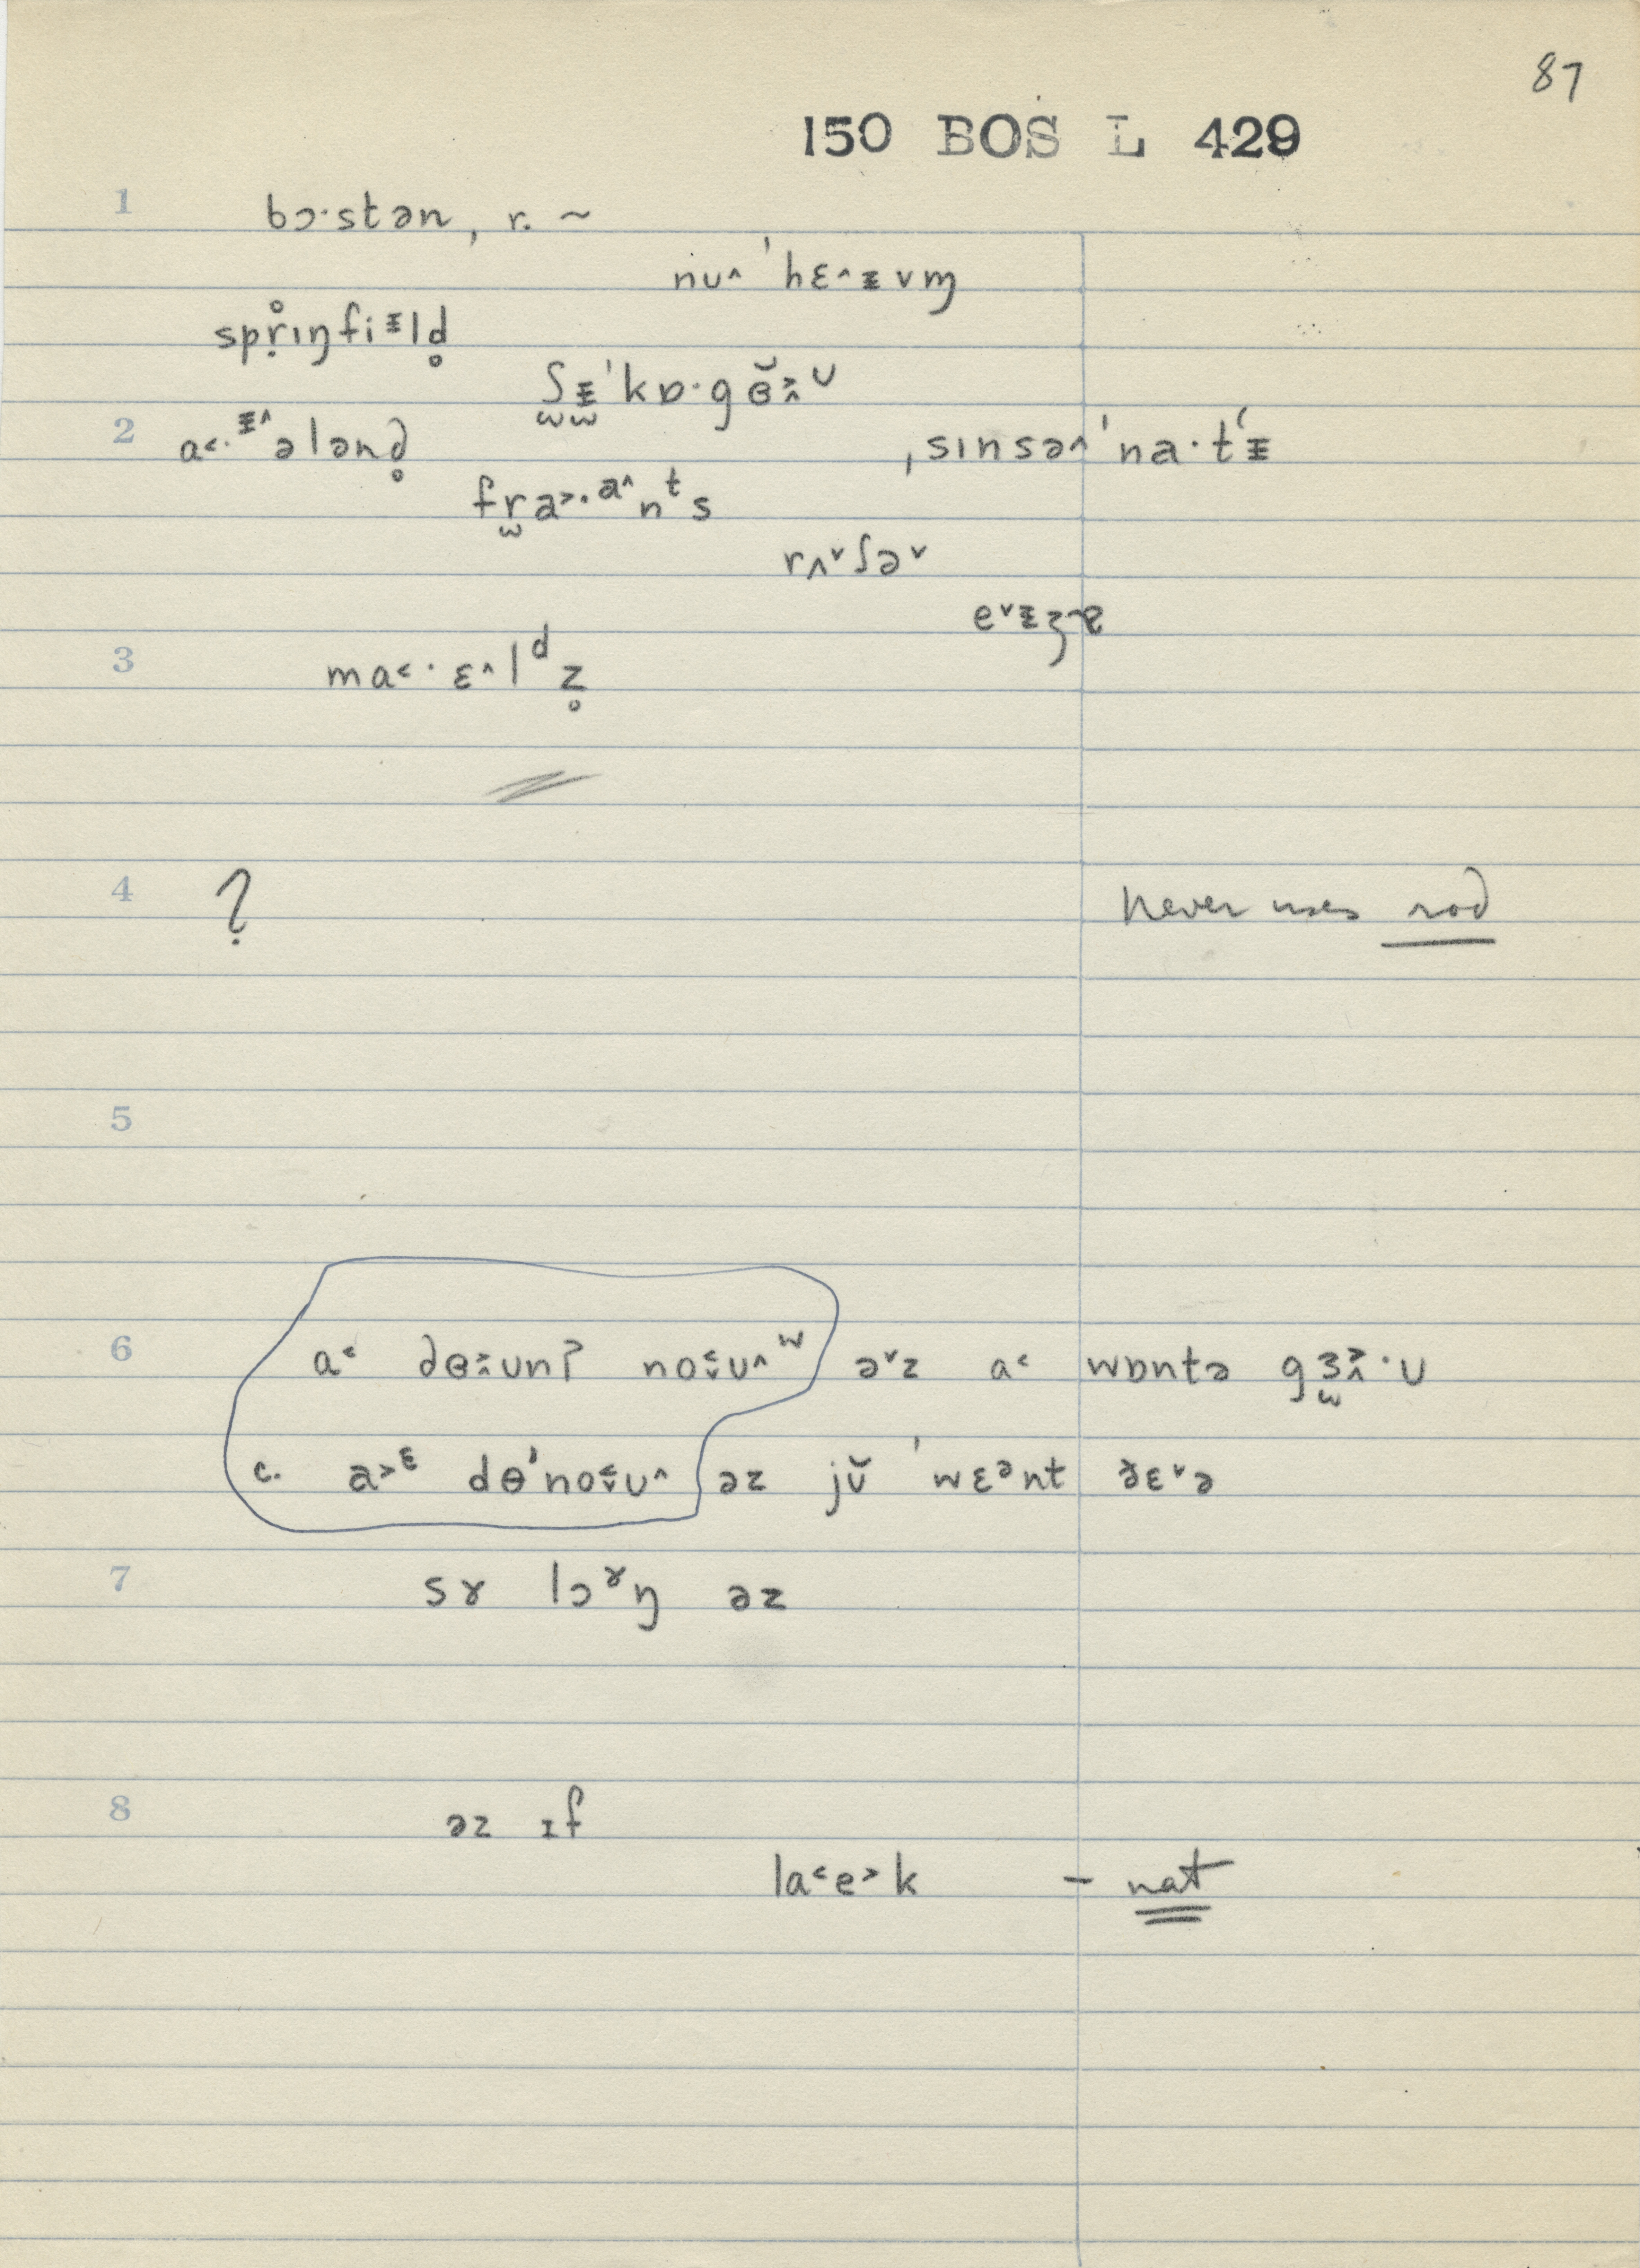 87
150 BOS L 429
1 bɔ·stən, r. ~
nu^ ˈhɛ^ᵻvɱ
spr̥ɪŋfiᵻld̥
ʃᵻˈkɒ·gɵ̆ᴜ
2 a˂·ᵻ^ələnd̥
ˌsɪnsə^ˈna·tʻᵻ
fra˃·a^nᵗs
rʌ˅ʃə˅
e˅ᵻʒɐ
3 ma˂·ɛ^lᵈz̥
4 ? Never uses rod
5
6 a˂ dɵunʔ noʊ^ʷ ə˅z a˂ wɒntə gɜ·ᴜ
c. a˃ᵋ dɵˈnoʊ^ əz jŭ ˈwɛᵊnt ðɛ˅ə
7 sɤ lɔˠŋ əz
8 əz ɪf
la˂e˃k – nat